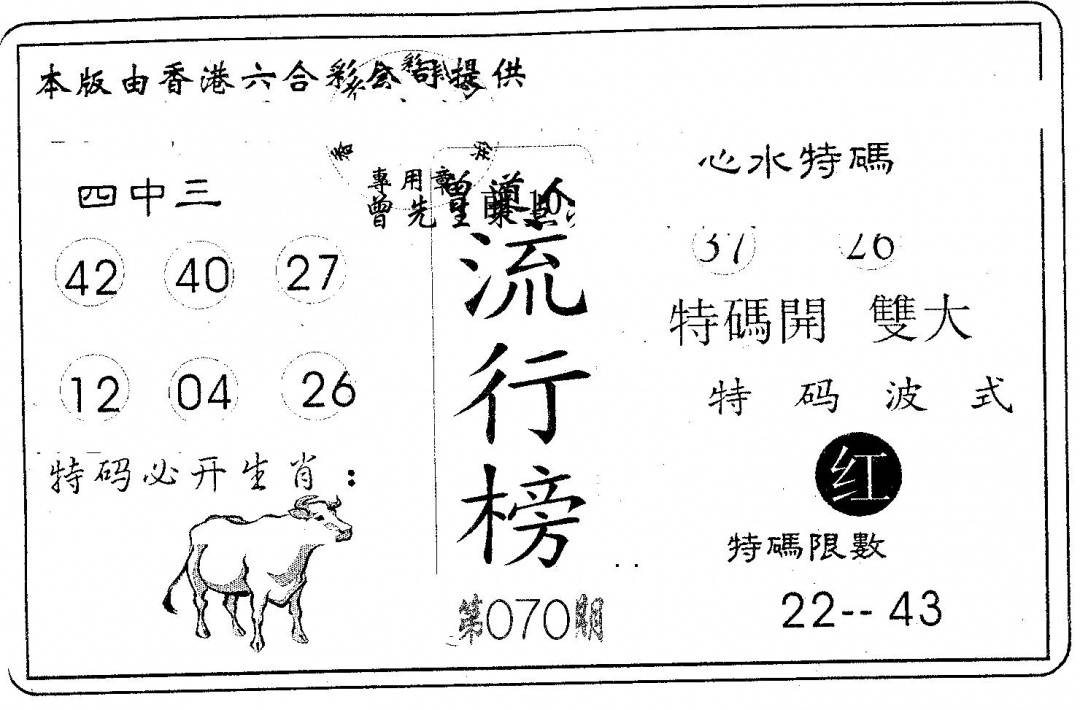 本版由香港六合彩公司提供
四中三
42 40 27
12 04 26
特码必开生肖：
專用章
曾先生
流行榜
第070期
心水特碼
37 26
特碼開 雙大
特码波式
红
特碼限數
22--43